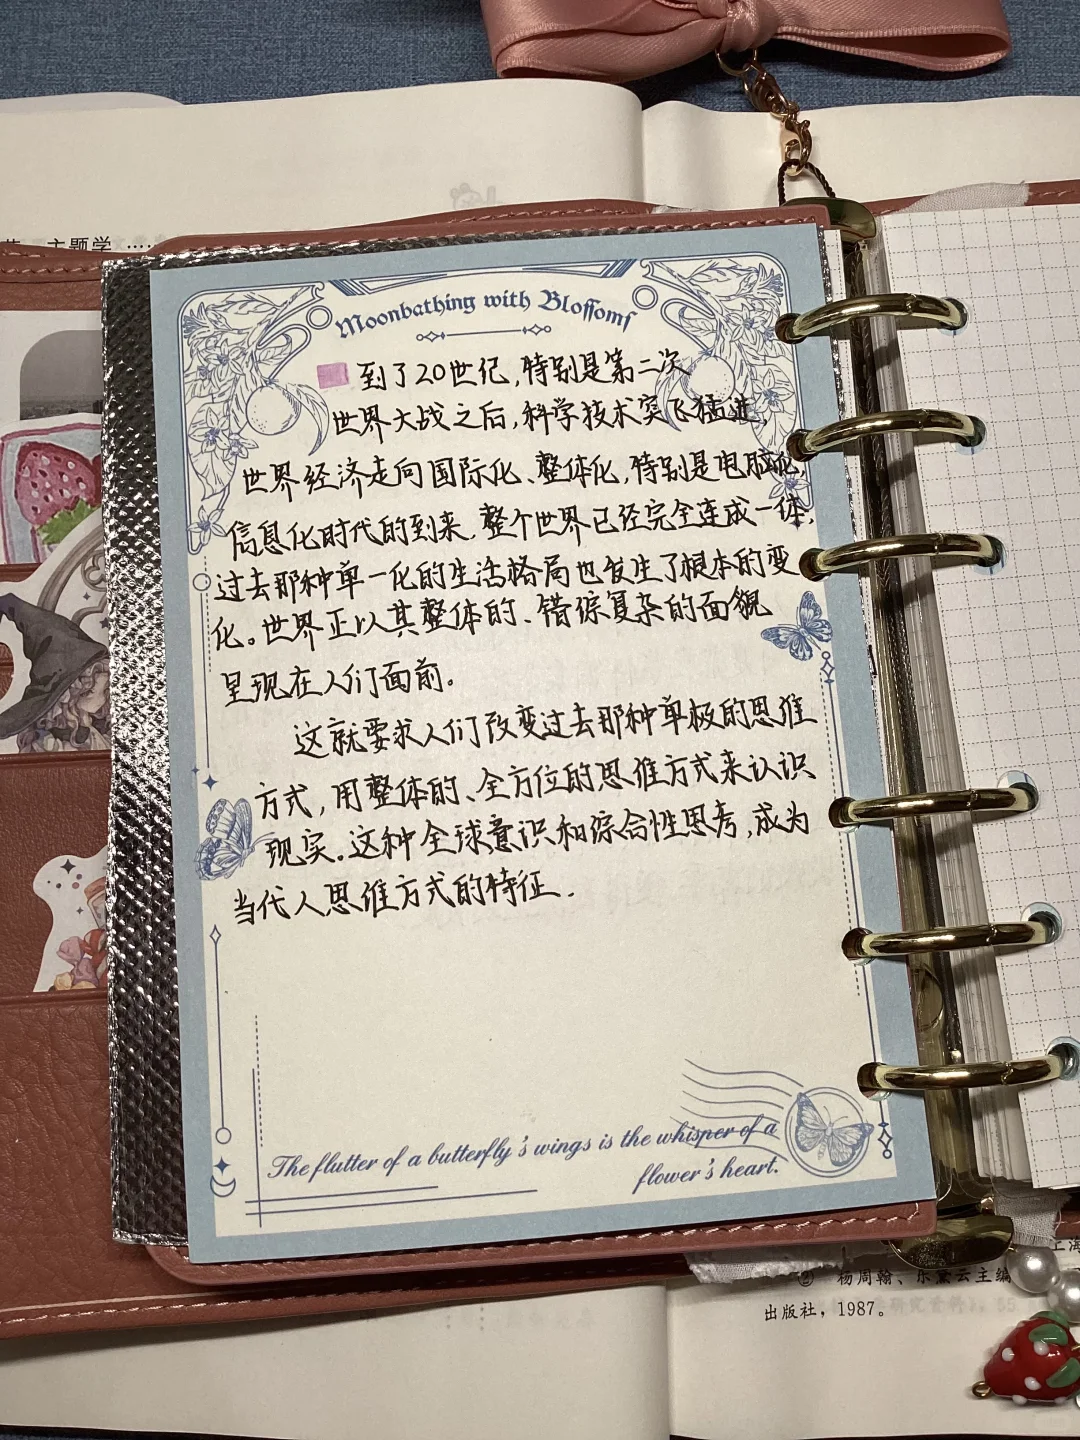 主题学 ……
Moonbathing with Blossoms
到了20世纪,特别是第二次
世界大战之后,科学技术突飞猛进,
世界经济走向国际化、整体化,特别是电脑化,
信息化时代的到来,整个世界已经完全连成一体,
过去那种单一化的生活格局也发生了根本的变
化。世界正以其整体的、错综复杂的面貌
呈现在人们面前。
这就要求人们改变过去那种单极的思维
方式,用整体的、全方位的思维方式来认识
现实。这种全球意识和综合性思考,成为
当代人思维方式的特征.
The flutter of a butterfly's wings is the whisper of a
flower's heart.
上海
② 杨周翰、乐黛云主编
出版社，1987。